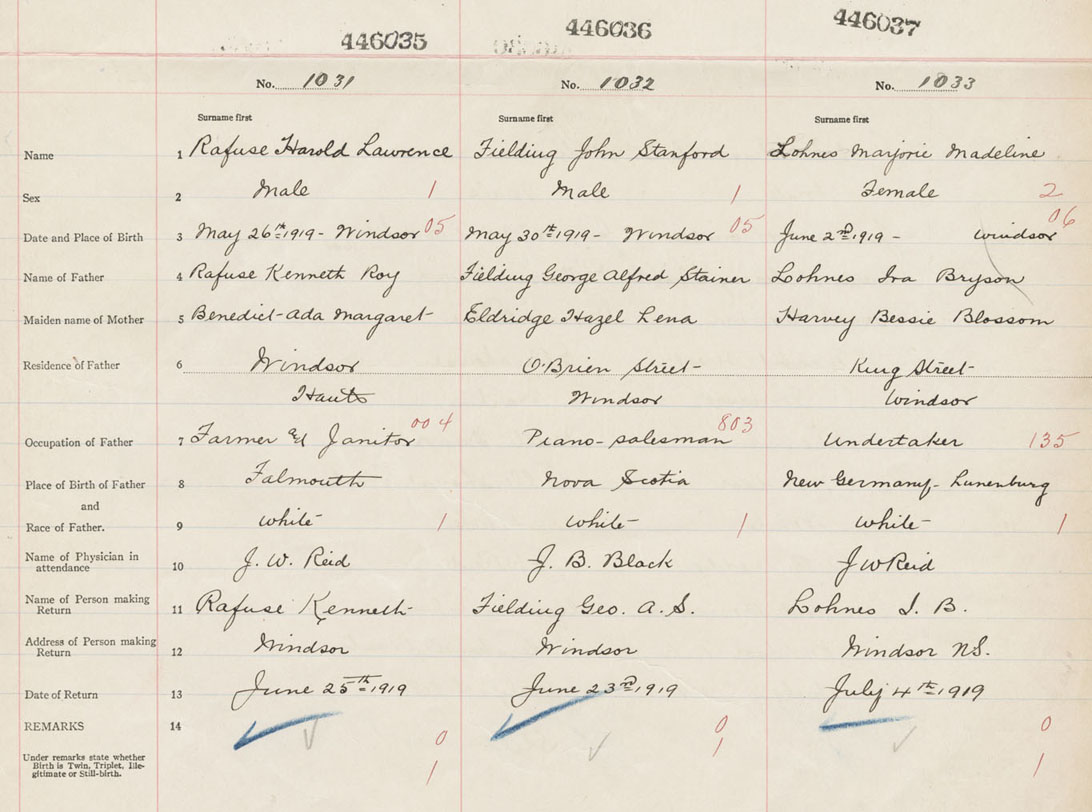 446035 446036 446037
No. 1031 No. 1032 No. 1033
Surname first Surname first Surname first
Name 1 Rafuse Harold Lawrence Fielding John Stanford Lohnes Marjorie Madeline
Sex 2 Male 1 Male 1 Female 2
Date and Place of Birth 3 May 26th 1919 - Windsor 05 May 30th 1919 - Windsor 05 June 2nd 1919 - Windsor 06
Name of Father 4 Rafuse Kenneth Roy Fielding George Alfred Stainer Lohnes Ira Bryson
Maiden name of Mother 5 Benedict Ada Margaret Eldridge Hazel Lena Harvey Bessie Blossom
Residence of Father 6 Windsor O'Brien Street King Street
Hants Windsor Windsor
Occupation of Father 7 Farmer & Janitor 004 Piano-salesman 803 Undertaker 135
Place of Birth of Father 8 Falmouth Nova Scotia New Germany - Lunenburg
and
Race of Father. 9 White 1 White 1 White 1
Name of Physician in
attendance 10 J. W. Reid J. B. Black J W Reid
Name of Person making
Return 11 Rafuse Kenneth Fielding Geo. A. S. Lohnes I. B.
Address of Person making
Return 12 Windsor Windsor Windsor NS.
Date of Return 13 June 25th 1919 June 23rd 1919 July 4th 1919
REMARKS 14 0 0 0
Under remarks state whether
Birth is Twin, Triplet, Ille-
gitimate or Still-birth. 1 1 1